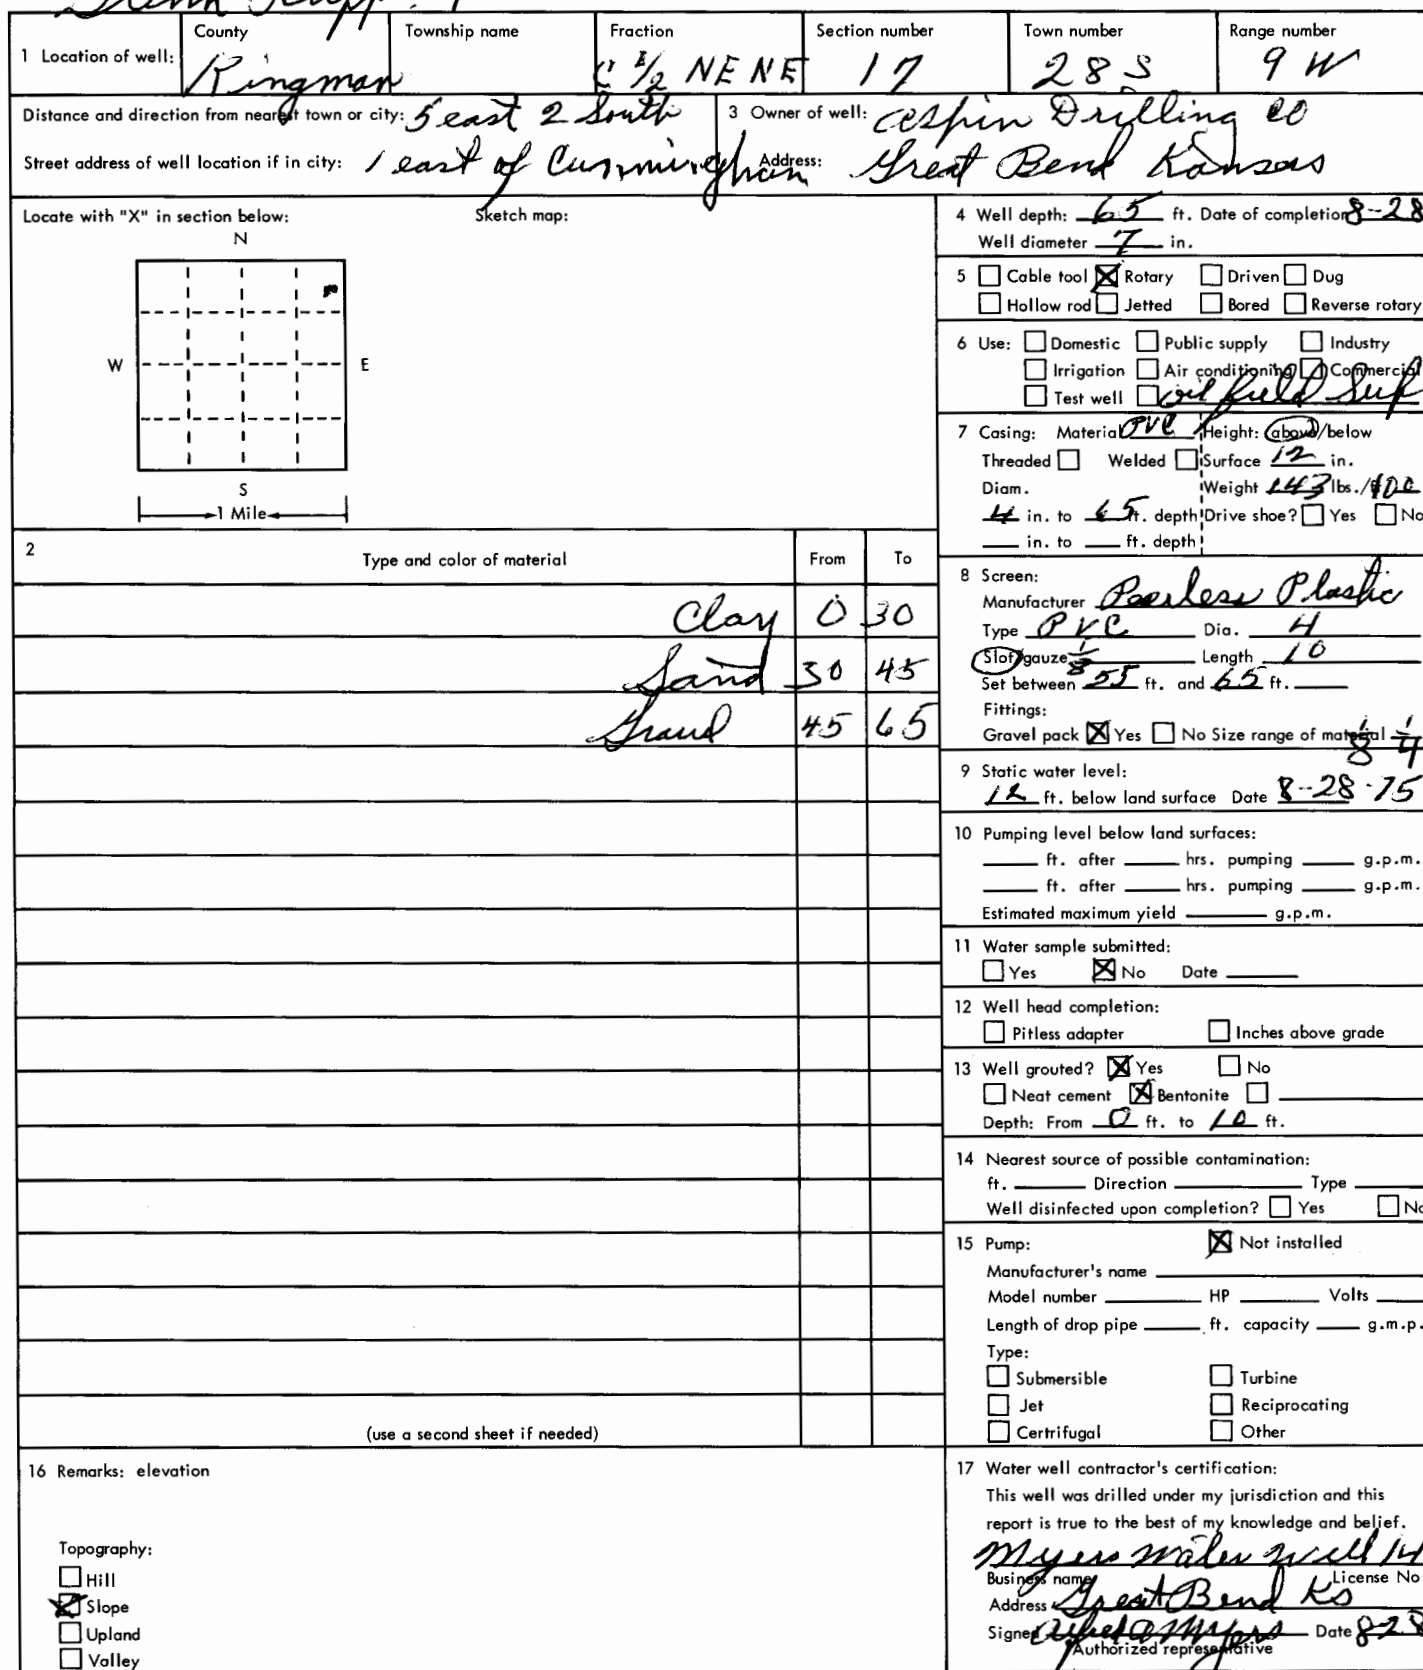 County Township name Fraction Section number Town number Range number
1 Location of well: Kingman C E/2 NE NE 17 28 S 9 W
Distance and direction from nearest town or city: 5 east 2 South
3 Owner of well: Aspin Drilling Co
Street address of well location if in city: 1 east of Cunningham
Address: Great Bend Kansas
Locate with "X" in section below: Sketch map:
N
W E
S
1 Mile
2 Type and color of material From To
Clay 0 30
Sand 30 45
Gravel 45 65
(use a second sheet if needed)
4 Well depth: 65 ft. Date of completion 8-28
Well diameter 7 in.
5 Cable tool Rotary Driven Dug
Hollow rod Jetted Bored Reverse rotary
6 Use: Domestic Public supply Industry
Irrigation Air conditioning Commercial
Test well oil field Sup
7 Casing: Material PVC Height: above/below
Threaded Welded Surface 12 in.
Diam. Weight 143 lbs./100
4 in. to 65 ft. depth Drive shoe? Yes No
in. to ft. depth
8 Screen:
Manufacturer Peerless Plastic
Type PVC Dia. 4
Slot/gauze 1/8 Length 10
Set between 55 ft. and 65 ft.
Fittings:
Gravel pack Yes No Size range of material 1/8 1/4
9 Static water level:
12 ft. below land surface Date 8-28-75
10 Pumping level below land surfaces:
ft. after hrs. pumping g.p.m.
ft. after hrs. pumping g.p.m.
Estimated maximum yield g.p.m.
11 Water sample submitted:
Yes No Date
12 Well head completion:
Pitless adapter Inches above grade
13 Well grouted? Yes No
Neat cement Bentonite
Depth: From 0 ft. to 10 ft.
14 Nearest source of possible contamination:
ft. Direction Type
Well disinfected upon completion? Yes No
15 Pump: Not installed
Manufacturer's name
Model number HP Volts
Length of drop pipe ft. capacity g.m.p.
Type:
Submersible Turbine
Jet Reciprocating
Certrifugal Other
16 Remarks: elevation
Topography:
Hill
Slope
Upland
Valley
17 Water well contractor's certification:
This well was drilled under my jurisdiction and this
report is true to the best of my knowledge and belief.
Myers water well 14
Business name License No
Address Great Bend Ks
Signed Myers Date 8-28
Authorized representative